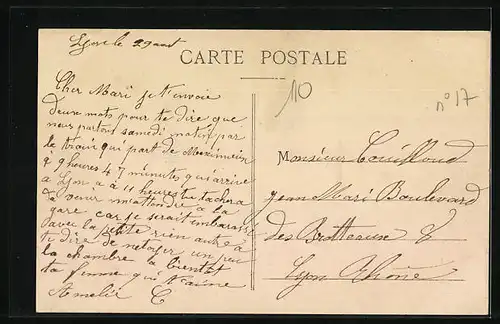 Lyon le 29 aout
CARTE POSTALE
10
n° 17
Cher Mari je t'envoie
deux mots pour te dire que
nous partons samedi matin par
le train qui part de Meximieux
à 9 heures 47 minutes qui arrive
a Lyon a 11 heures tu tachera
de venir m'attendre a la
gare car je serait embarassé
avec la petite rien autre a
te dire de netoyer un peu
la chambre a bientot
ta femme qui t'aime
Amelie C
Monsieur Couilloud
jean Mari Boulevard
des Brotteaux 8
Lyon Rhône